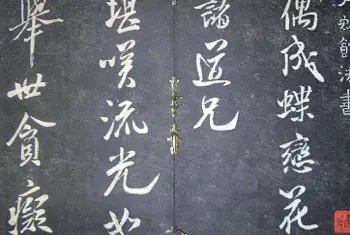 法書
偶成蝶戀花
諸道兄
堪咲流光如
舉世貪癡